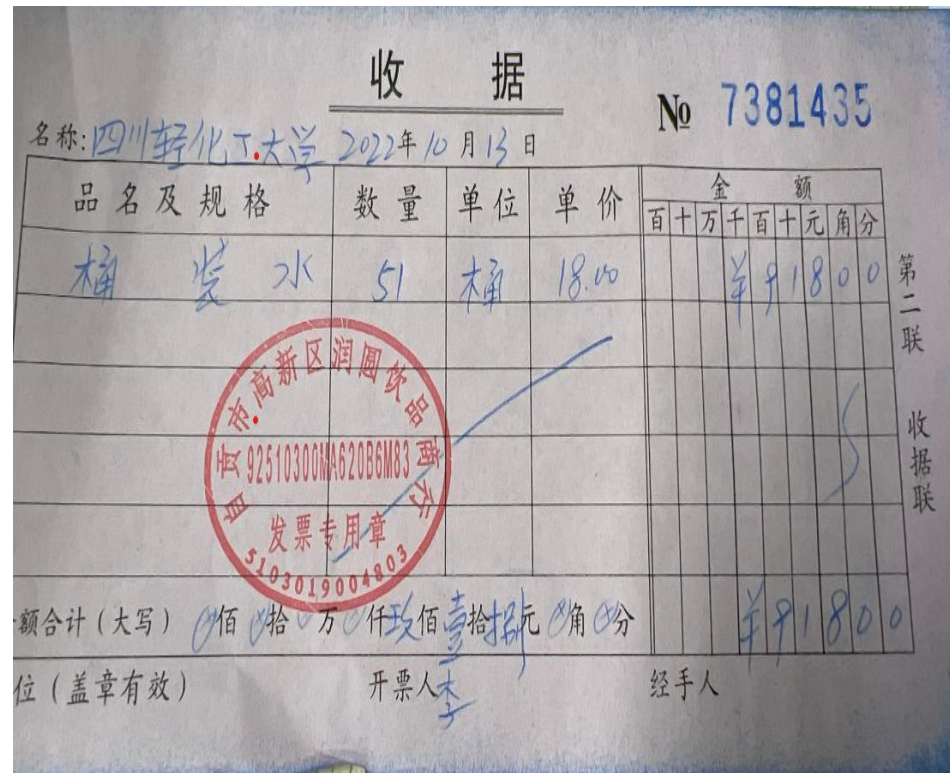 收 据
№ 7381435
名称:四川轻化工大学 2022年10月13日
品名及规格 数量 单位 单价 金额
百十万千百十元角分
桶装水 51 桶 18.00 ¥91800
第二联 收据联
自贡市高新区润圆饮品商行
92510300MA620B6M83
发票专用章
5103019004803
额合计(大写) 0佰0拾0万0仟玖佰壹拾捌元0角0分 ¥91800
位(盖章有效) 开票人 李 经手人